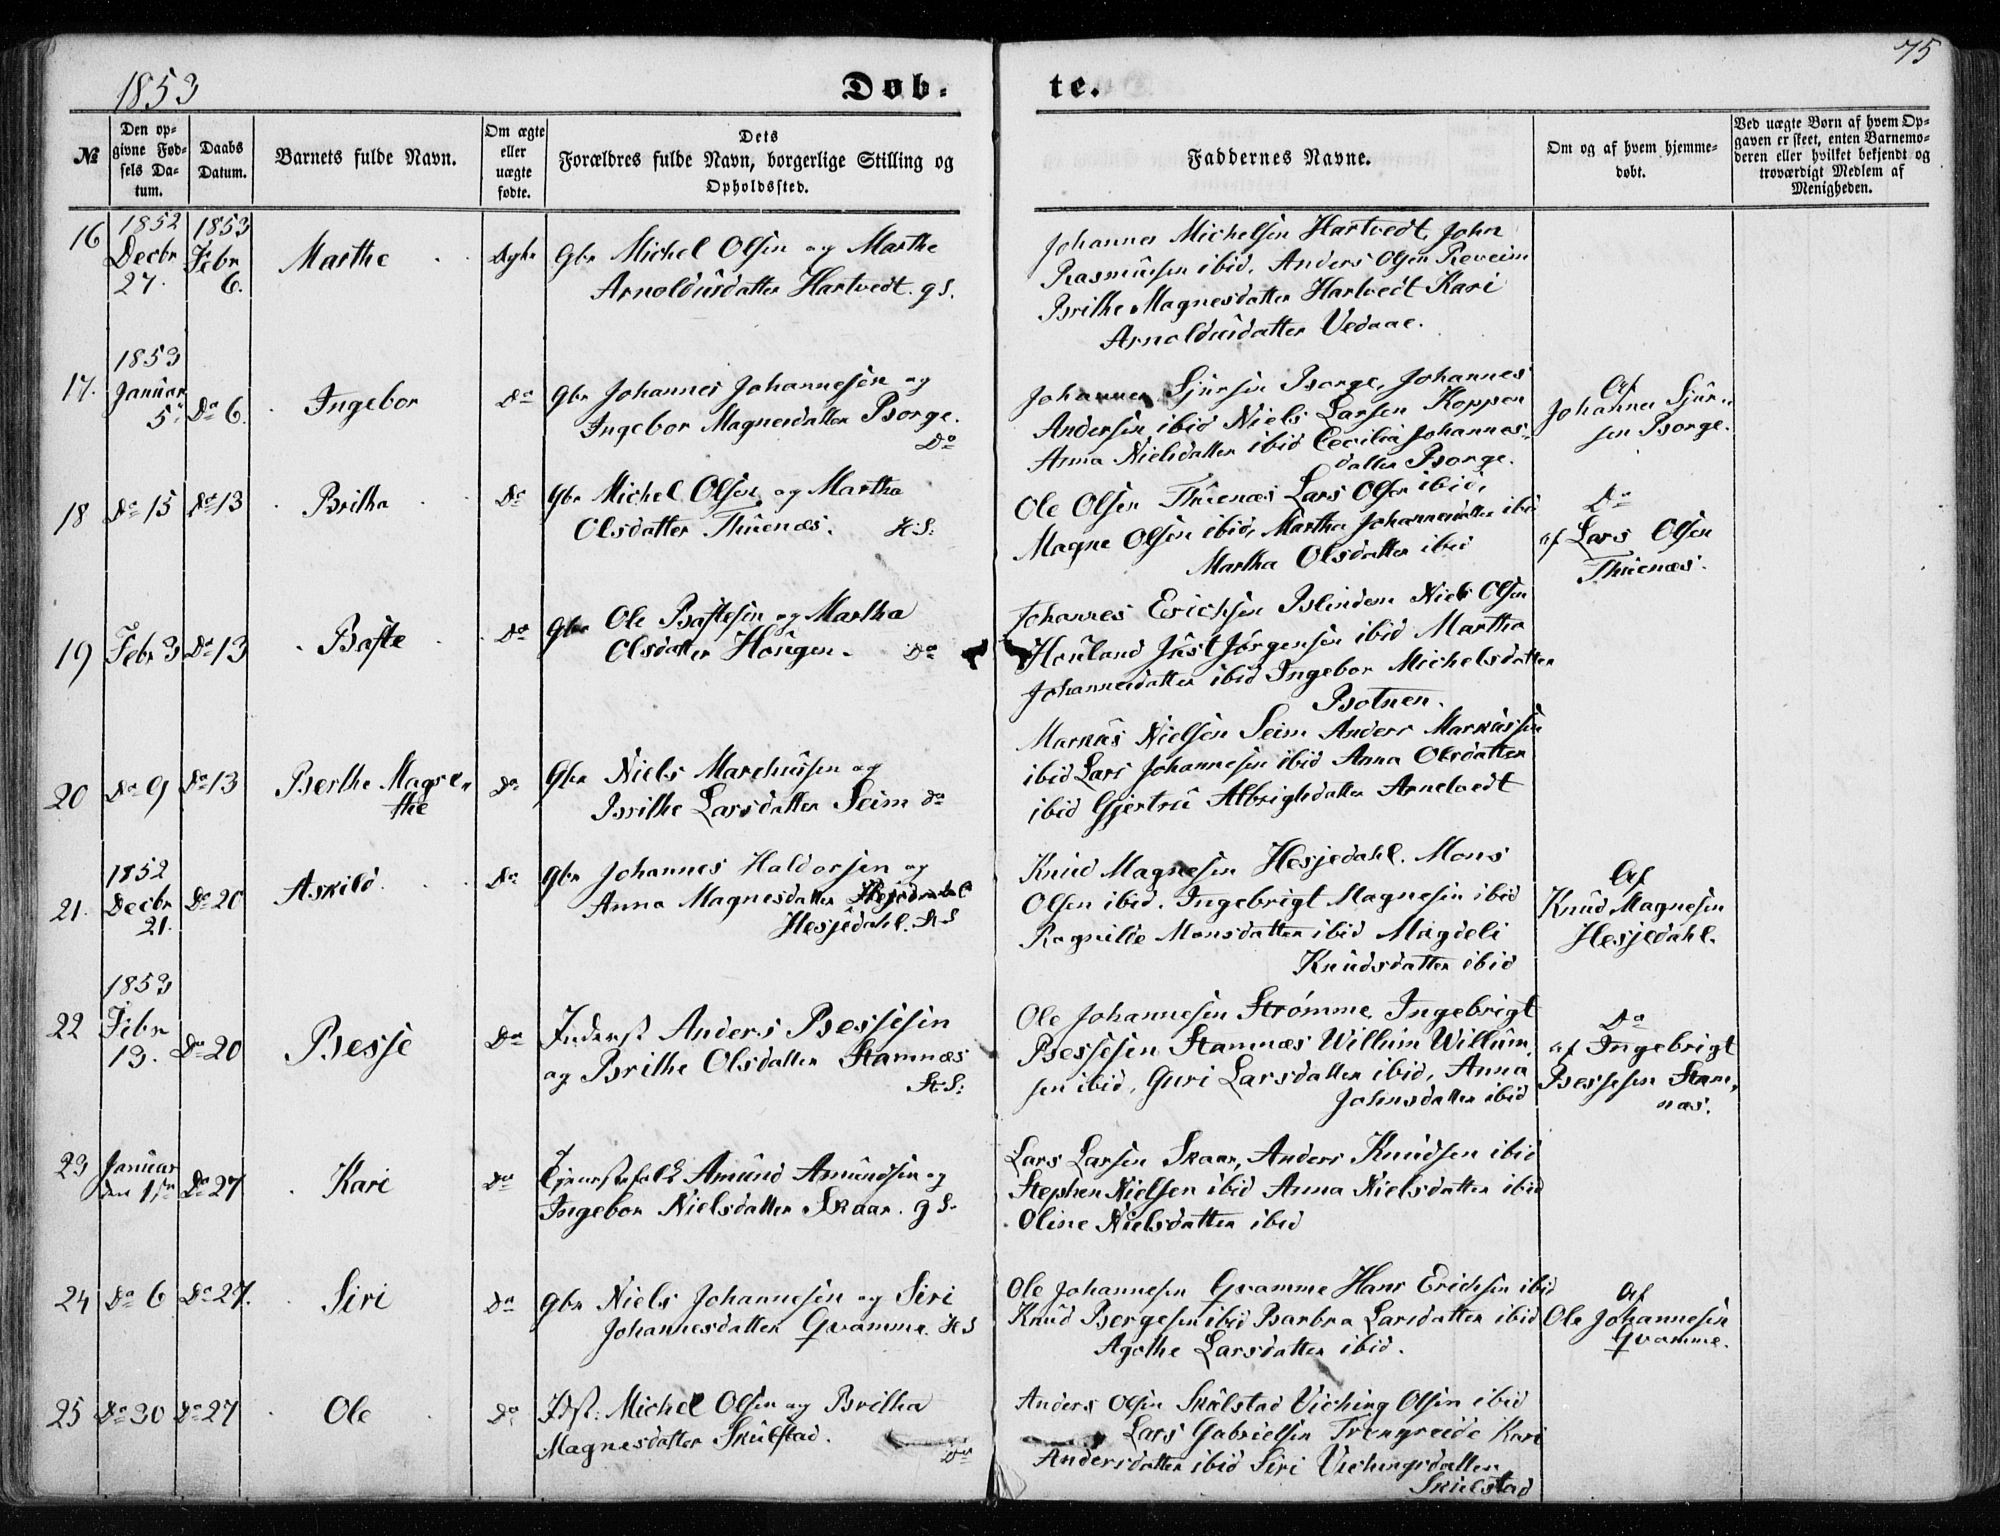 75
1853
Døb-
te.
№
Den op-
givne Fød-
sels Da-
tum.
Daabs
Datum.
Barnets fulde Navn.
Om ægte
eller
uægte
fødte.
Dets
Forældres fulde Navn, borgerlige Stilling og
Opholdssted.
Faddernes Navne.
Om og af hvem hjemme-
døbt.
Ved uægte Børn af hvem Op-
gaven er skeet, enten Barnemo-
deren eller hvilket bekjendt og
troværdigt Medlem af
Menigheden.
16
1852
Decbr
27.
1853
Febr
6.
Marthe
Ægte
Gbr Michel Olsen og Marthe
Arnoldusdatter Hartvedt. g S.
Johannes Michelsen Hartvedt, John
Rasmussen ibid. Anders Olsen Reveim
Brithe Magnesdatter Hartvedt Kari
Arnoldusdatter Vedaae.
17.
1853
Januar
5.
Do 6.
Ingebor
Do
Gbr Johannes Johannesen og
Ingebor Magnesdatter Borge.
Do
Johannes Sjursen Borge, Johannes
Andersen ibid Niels Larsen Koppen
Anna Nielsdatter ibid Cecilia Johannes-
datter Borge.
Af
Johannes Sjur-
sen Borge.
18
Do 15
Do 13
Britha
Do
Gbr Michel Olsen og Martha
Olsdatter Thuenæs. H.S:
Ole Olsen Thuenæs Lars Olsen ibid,
Magne Olsen ibid, Martha Johannesdatter ibid
Martha Olsdatter ibid
Do
af Lars Olsen
Thuenæs.
19
Febr 3
Do 13
Baste
Do
Gbr Ole Bastesen og Martha
Olsdatter Hougen. Do
Johannes Erichsen Blindem Niels Olsen
Houland Just Jørgensen ibid Martha
Johannesdatter ibid Ingebor Michelsdatter
Botnen.
20
Do 9
Do 13
Berthe Magre-
the
Do
Gbr Niels Marcussen og
Brithe Larsdatter Seim do
Markus Nielsen Seim Anders Markussen
ibid Lars Johannesen ibid Anna Olsdatter
ibid Gjertru Albrigtsdatter Arnetvedt
21.
1852
Decbr
21.
Do 20
Askild
Do
Gbr Johannes Haldorsen og
Anna Magnesdatter
Hesjedahl. St S
Knud Magnesen Hesjedahl. Mons
Olsen ibid. Ingebrigt Magnesen ibid
Ragnilde Monsdatter ibid Magdeli
Knudsdatter ibid
Af
Knud Magnesen
Hesjedahl.
22
1853
Febr
13.
Do 20
Besse
Do
Inderst Anders Bessesen
og Brithe Olsdatter Stamnæs
St S:
Ole Johannesen Strømme, Ingebrigt
Bessesen Stamnæs Willum Willum-
sen ibid, Guri Larsdatter ibid, Anna
Johnsdatter ibid
Do
af Ingebrigt
Bessesen Stam-
næs.
23
Januar
den 1ste
Do 27
Kari
Do
Tjenestefolk Amund Amundsen og
Ingebor Nielsdatter Skaar. g S.
Lars Larsen Skaar, Anders Knudsen ibid
Stephen Nielsen ibid Anna Nielsdatter ibid
Oline Nielsdatter ibid
24
Do 6
Do 27.
Siri
Do
Gbr Niels Johannesen og Siri
Johannesdatter Qvamme. H S
Ole Johannesen Qvamme Hans Erichsen ibid
Knud Bergesen ibid Barbra Larsdatter ibid
Agathe Larsdatter ibid.
Af
Ole Johannesen
Qvamme.
25
Do 30
Do 27
Ole
Do
Idst: Michel Olsen og Britha
Magnesdatter Skulstad.
Do
Anders Olsen Skulstad Viching Olsen ibid
Lars Gabrielsen Trengreide Kari
Andersdatter ibid Siri Vichingsdatter
Skulstad